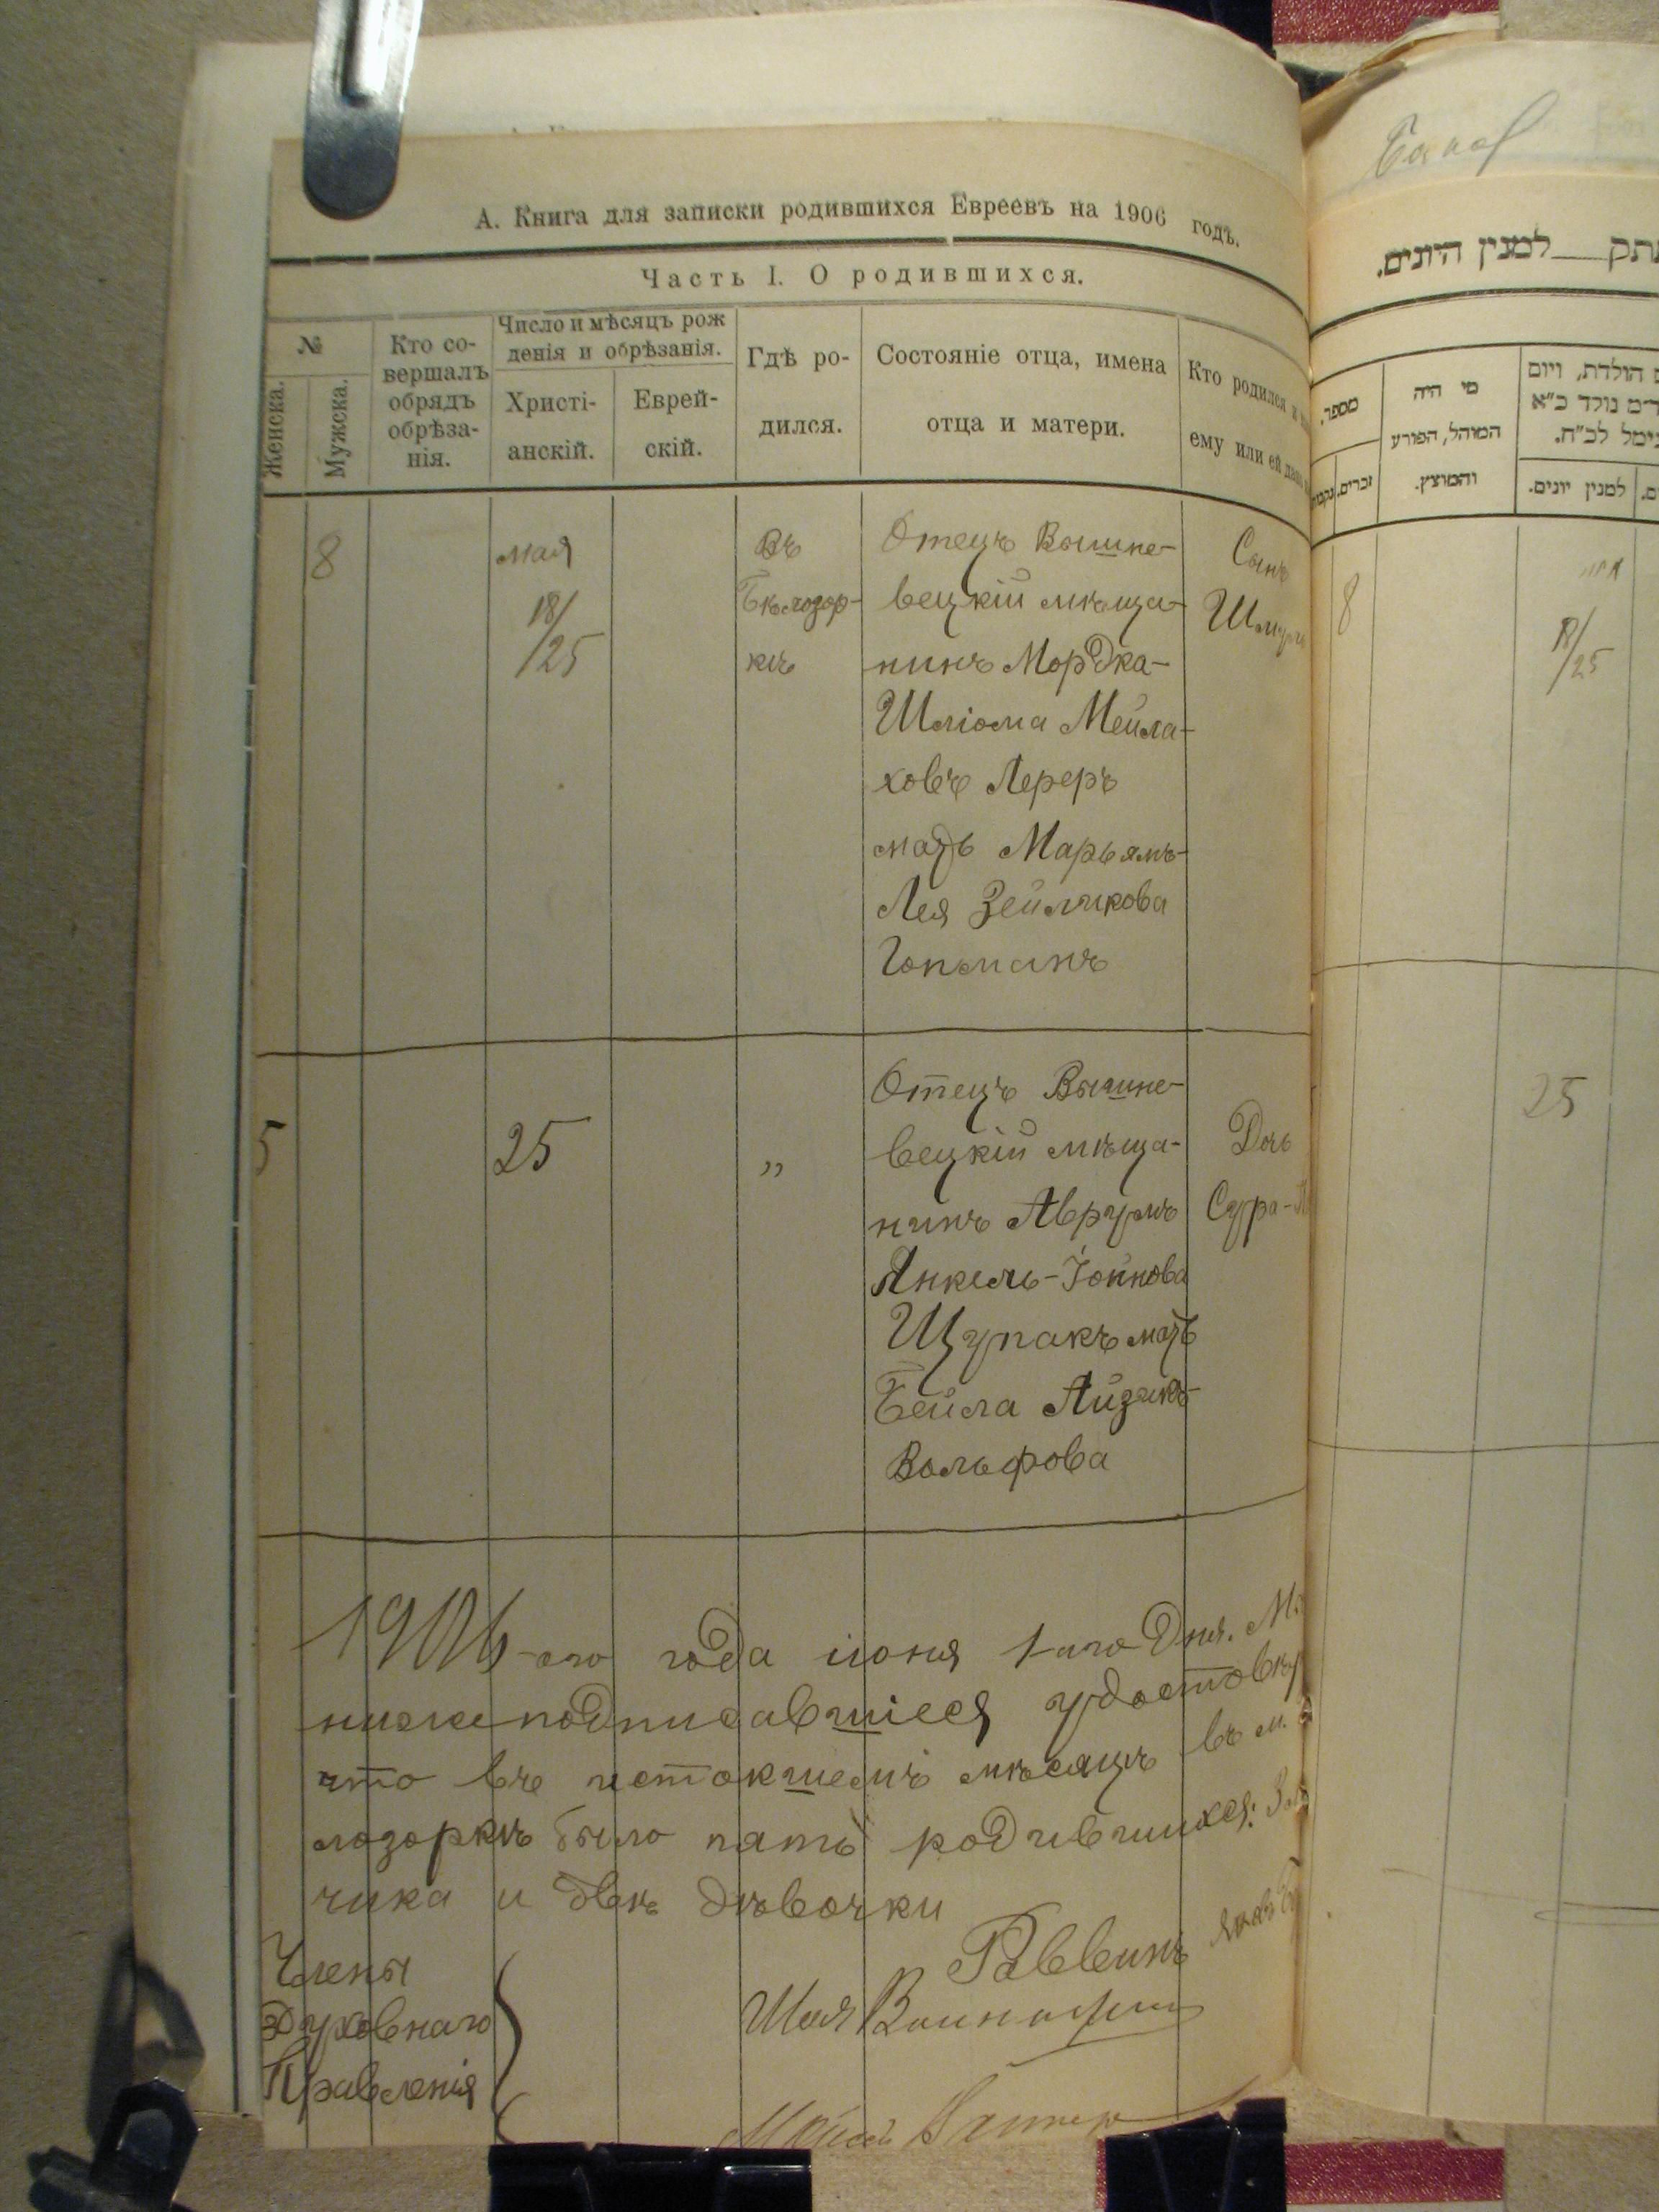 А. Книга для записки родившихся Евреевъ на 1906 годъ.
Часть I. О родившихся.
№
Женска.
Мужска.
Кто со-
вершалъ
обрядъ
обрѣза-
нія.
Число и мѣсяцъ рож
денія и обрѣзанія.
Христі-
анскій.
Еврей-
скій.
Гдѣ ро-
дился.
Состояніе отца, имена
отца и матери.
Кто родился и
ему или ей дано
8
мая
18/
/25
Въ
Бѣлозор-
кѣ
Отецъ Вышне-
вецкій мѣща-
нинъ Мордка-
Шліома Мейла-
ховъ Лереръ
мать Марьямъ-
Лея Зейликова
Гопманъ
Сынъ
Шмуль
5
25
„
Отецъ Вышне-
вецкій мѣща-
нинъ Аврумъ
Янкель-Іойнова
Щупакъ мать
Бейла Айзикъ-
Вольфова
Дочь
Сура-
1906-ого года іюня 1-аго Дня.
нижеподписавшіеся удостовѣр
что въ истокшемъ мѣсяцѣ въ м.
лозоркѣ было пять родившихся:
чика и двѣ дѣвочки
Раввинъ
Члены
Духовнаго
Правленія
Шая
למנין היונים.
מספר.
זכרים.
מי היה
המוהל, הפורע
והמוצץ.
הולדת, ויום
נולד כ"א
לכ"ח.
למנין יונים.
8
18/
/25
25